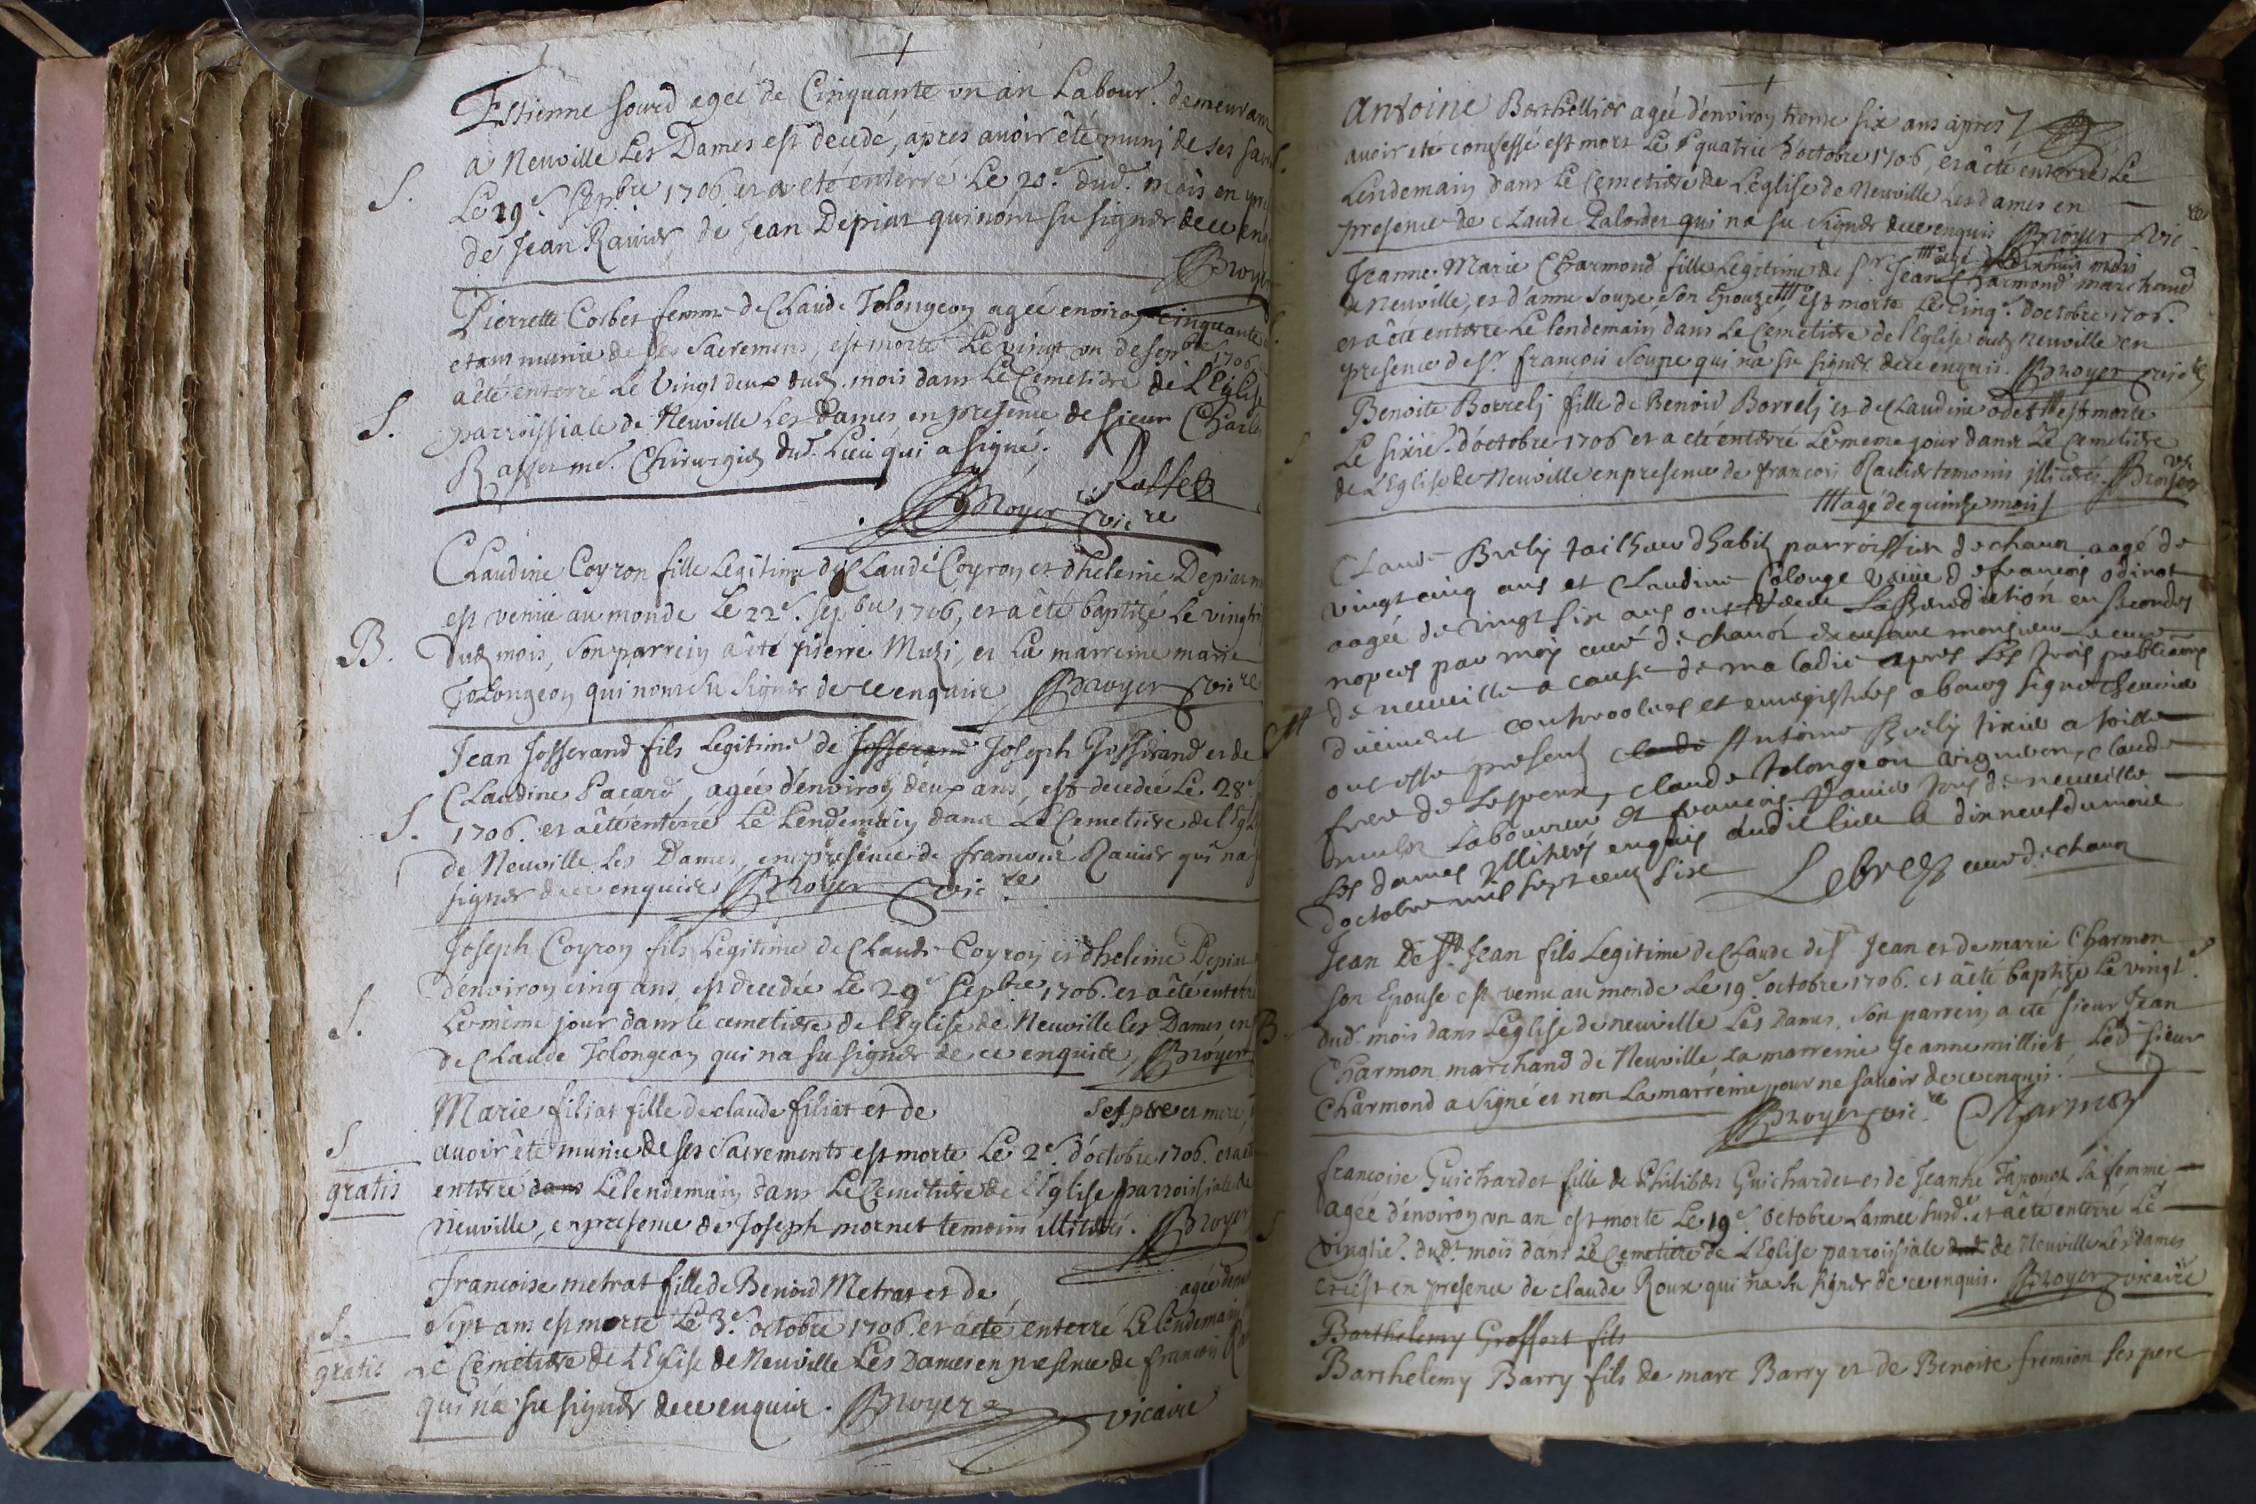 Estienne sourd agée de Cinquante un an Labour. demeurant
a Neuville Les Dames est decedé, apres avoir êté muni de ses
S. Le 19e. sepbre 1706. et a eté enterré Le 20e. dud. mois en
de Jean Ravier, de Jean Depiat qui nont su signer de ce
Broyer
Pierrette Corbet femme de Claude Tolongeon agée environ cinquante
etant munie de ses Sacremens, est morte Le vingt un de sepbre 1706
a êté enterré Le Vingt deux dud. mois dans Le Cemetiere de L'Eglise
S. parroissiale de Neuville Les Dames, en presence de sieur Charles
Raffet me. Chirurgien dud. Lieu qui a signé.
Raffet
Broyer vicre
Claudine Coyron fille Legitime de Claude Coyron et dheleine Depiat
est venüe au monde Le 22e. sepbre 1706, et a êté baptizé Le
B. dud. mois, son parrein a êté pierre Muzi, et La marreine marie
Tolongeon qui nont su signer de ce enquire Broyer vicre
Jean Josserand fils Legitime de Josserand Joseph Josserand et de
Claudine Pacard, agée d'environ deux ans, est decedée Le 28e
S. 1706. et a êté enterré Le Lendemain dans Le Cemetiere de
de Neuville Les Dames, en presence de francois Ravier qui na
signer de ce enquire Broyer vicre
Joseph Coyron fils Legitime de Claude Coyron et dheleine Depiat
d'environ cinq ans est decedée Le 29e sepbre 1706. et a êté enterré
S. Le même jour dans le cemetiere de l'Eglise de Neuville les Dames, en
de Claude Tolongeon qui na su signer de ce enquire, Broyer
Marie filiat fille de claude filiat et de ses pere et mere
S avoir êté munie de ses Sacrements est morte Le 2e. d'octobre 1706. et a
gratis enterré dans Le lendemain dans Le Cemetiere de l'Eglise parroissiale de
Neuville, en presence de Joseph mornet temoin illitéré. Broyer
francoise metrat fille de Benoid Metrat et de agée
S. Sept ans est morte Le 3e. octobre 1706. et a eté enterré Le lendemain
gratis Le Cemetiere de L'Eglise de Neuville Les Dames en presence de francois
qui na su signer de ce enquire. Broyer vicaire
Antoine Berthellier agée d'environ trente six ans apres
avoir eté confessé est mort Le quatrie d'octobre 1706, et a êté enterré Le
S. Lendemain dans Le Cemetiere de L'eglise de Neuville Les dames en
presence de Claude Palordet qui na su signer de ce enquis Broyer vicre
Jeanne-Marie Charmond fille Legitime de Sr. Jean Charmond marchand
agé de dixhuit mois
de Neuville, et d'anne soupe son Epouze, est morte Le Cinqe. d'octobre 1706.
et a êté enterré Le lendemain dans Le Cemetiere de l'Eglise dud. Neuville en
presence de sr. françois Soupe qui na su signer de ce enquis. Broyer vicre
Benoite Borrelj fille de Benoid Borrelj et de Claudine odet est morte
S Le sixié. d'octobre 1706 et a eté enterré Le meme jour dans Le Cemetiere
de L'Eglise de Neuville en presence de francois Ravier temoins illiteré. Broyer
agé de quinze mois
Claude Brély tailheur dhabit parroissien de chanoz aagé de
vingt cinq ans et Claudine Colonge veüve de francois odinot
aagée de vingt six ans ont receu La Benediction en secondes
nopces par moy curé de chanoz en cause monsieur Le curé
de neuville a cause de maladie apres Les trois publications
M düement controolees et enregistrées a bourg signé chevrier
ont esté presents claude Antoine Brély tixier a toille
frere de Lespoux, claude tolongeon vigneron, claude
Laboureur et francois Ravier tous de neuville
Les dames Illiterés enquis audit lieu le dix neuf du mois
doctobre mil sept cent six Lebrez curé de chanoz
Jean De St. Jean fils Legitime de Claude de St Jean et de marie Charmon
son Epouse est venu au monde Le 19e. octobre 1706. et a êté baptizé Le vingte
B dud. mois dans L'eglise de neuville Les Dames. son parrein a eté sieur Jean
Charmon marchand de Neuville La marreine Jeanne milliet, Led. sieur
Charmond a signé et non La marreine pour ne savoir de ce enquis.
Broyer vicre Charmon
francoise Guichardet fille de Philibert Guichardet et de Jeanne Taponet sa femme
agée d'environ un an est morte Le 19e. octobre L'année susd. et a êté enterré Le
S vingtié. dud. mois dans Le Cemetiere de L'Eglise parroissiale dud. de Neuville Les Dames
et c'est en presence de claude Roux qui na su signer de ce enquis. Broyer vicaire
Barthelemy Groffort fils
Barthelemy Barry fils de marc Barry et de Benoite fremion ses pere